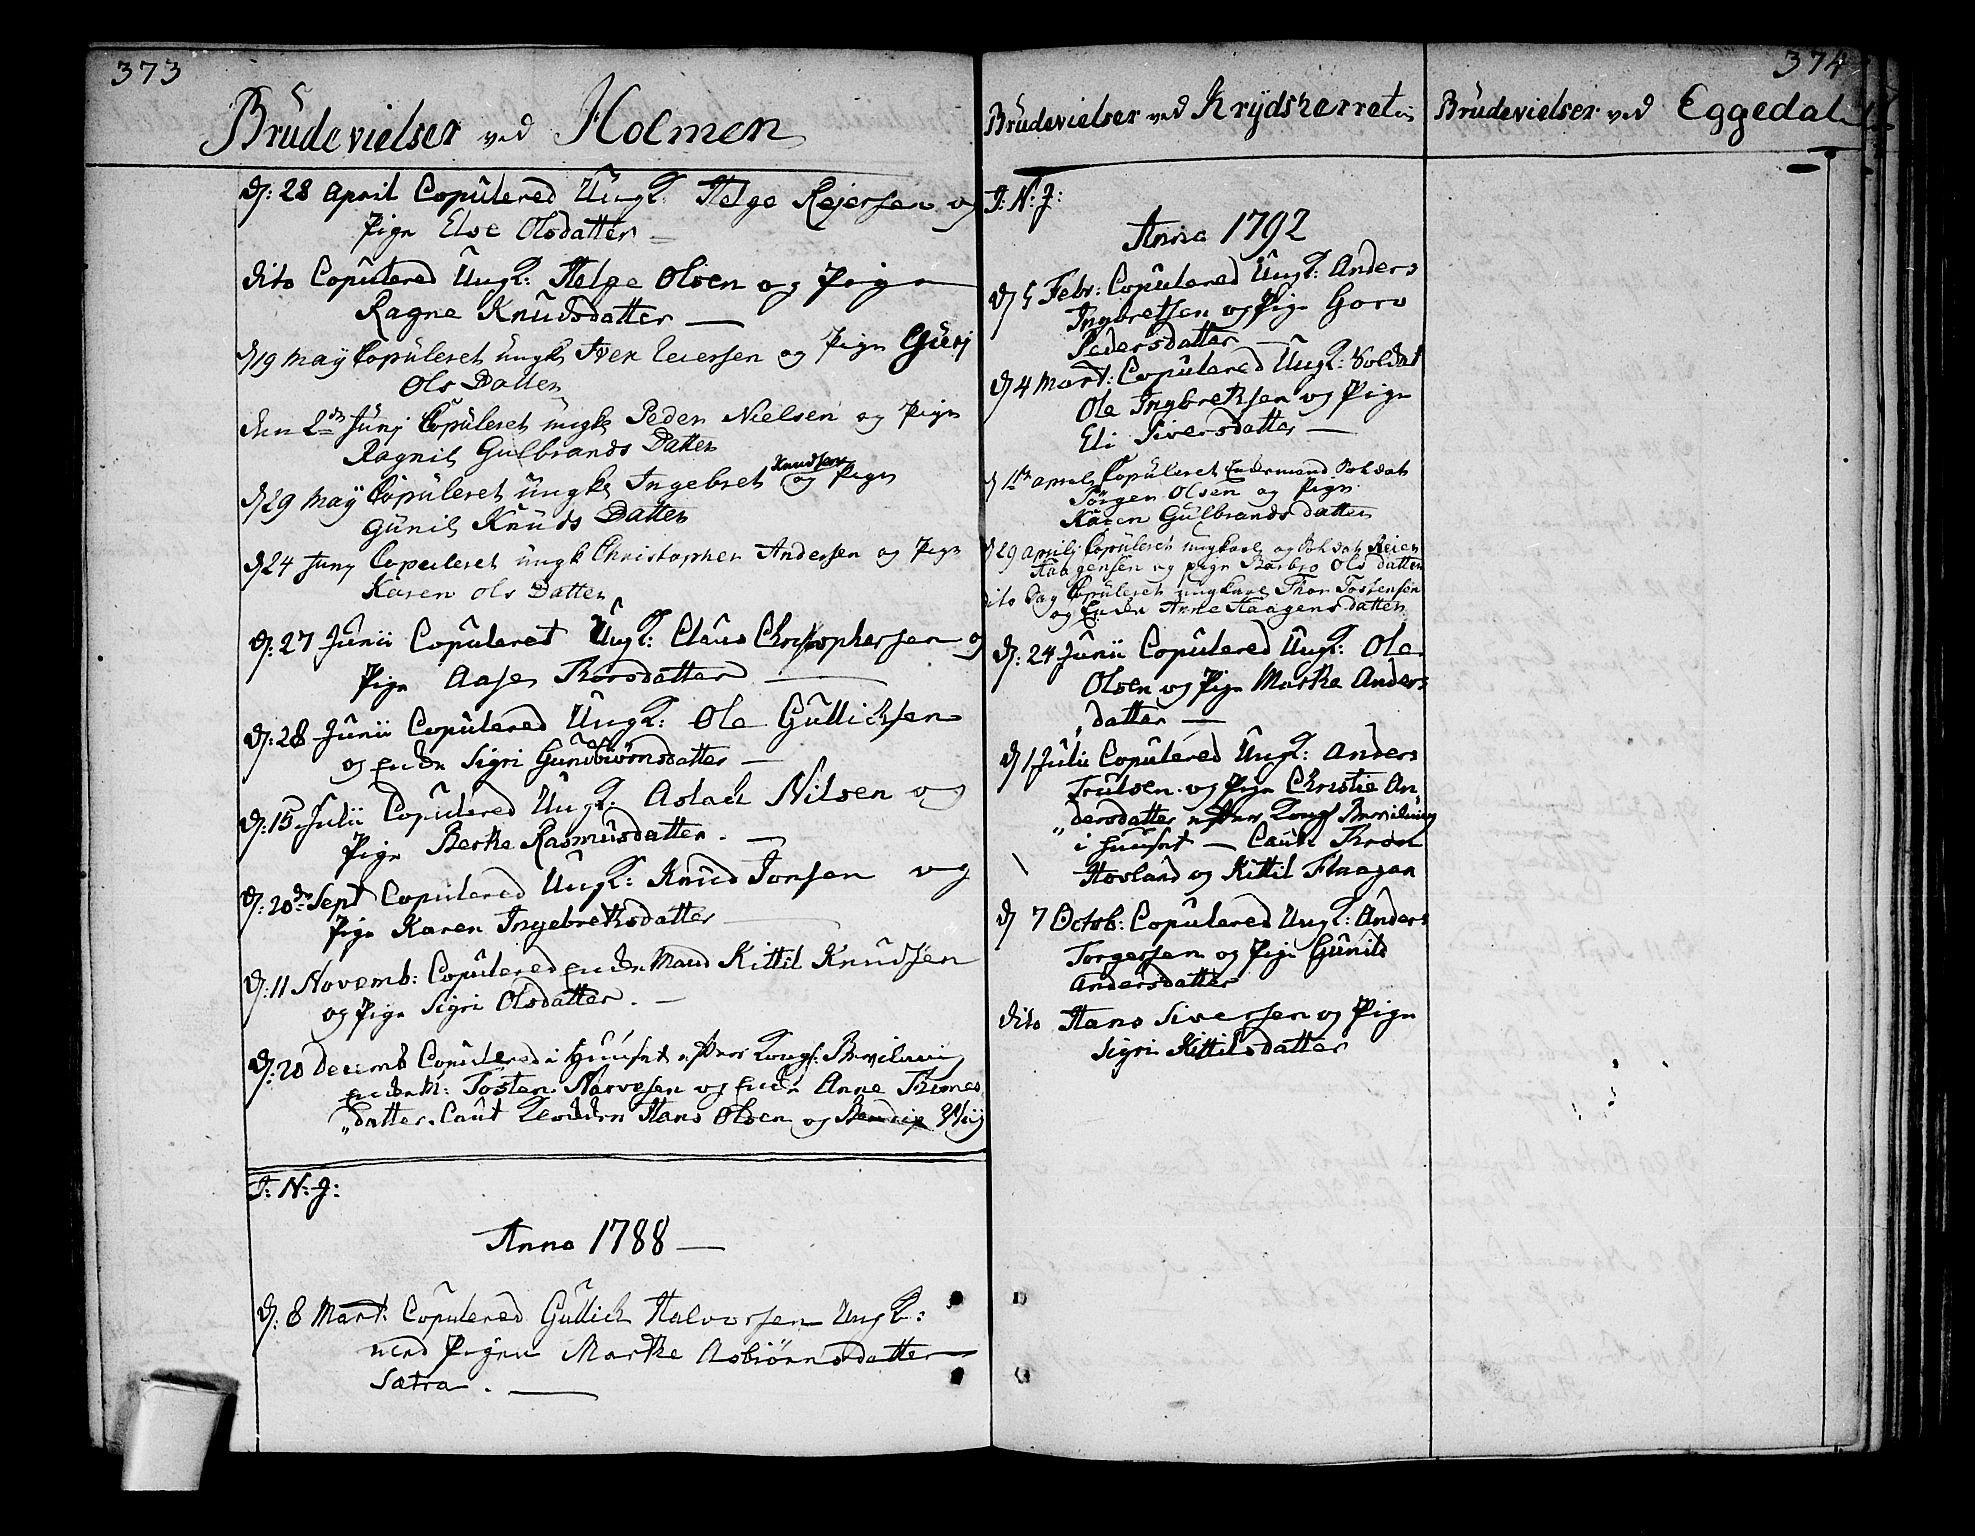 373
Brüdevielser ved Holmen
D: 28 April Copülered Üngk: Helge Rejersen og
Pige Else Olsdatter
dito Copülered Üngk: Helge Olsen og Pige
Ragne Knüdsdatter
D 19 Maÿ Copüleret üngk Iver og Pige Gürj
Ols Datter
den 2den Jünj Copüleret üngk Peder Nielsen og Pige
Ragnil Gulbrands Datter
D 29 Maÿ Copüleret üngk Ingebret Knudsen og Pige
Günil Knüds Datter
D 24 Junj Copuleret üngk Christopher Andersen og Pige
Karen Ols Datter
D: 27 Junii Copuleret Üngk: Claus Christophersen og
Pige Aase Thorsdatter
D: 28 Junii Copülered Üngk: Ole Güllichsen
og Enken Sigri Günbiörnsdatter
D: 15 Julii Copülered Üngk: Aslach Nilsen og
Pige Berthe Rasmüsdatter
D: 20de Sept Copülered Üngk: Knüd Jonsen og
Pige Karen Ingebrethsdatter
D: 11 Novemb: Copülered Enkemand Kittil Knudsen
og Pige Sigri Olsdatter
D: 20 Decemb Copülered i Huuset efter Kongl: Bevilning
EnkeM: Tosten Narvesen og Enken Anne
datter. Caut Hans Olsen og
I: N: J:
Anno 1788
D: 8 Mart: Copulered Güllich Halvorsen Ungk:
med Pigen Marthe Asbiörnsdatter
Sætra
374
Brüdevielser ved Krÿdsherret
I: N: J:
Anno 1792
D 5 Febr: Copülered Üngk: Anders
Ingbretsen og Pige Goro
Pedersdatter
D 4 Mart: Copülered Üngk: Soldat
Ole Ingbrethsen og Pige
Eli Siversdatter
D 1te April Copüleret Enkemand Soldat
Jörgen Olsen og Pige
Karen Gülbrands datter
D 29 Aprilj Copüleret üngkarl og Soldat Reier
Haagensen og pige Barbro Ols datter
dito Dag Copüleret üngkarl Thor Tostensön
og Enken Anne Haagens datter
D: 24 Junii Copülered Üngk: Ole
Olsen og Pige Marthe Anders
datter
D 1 Julii Copülered Üngk: Anders
Trülsen og Pige Christie An
dersdatter efter Kongl Bevilning
i Huuset Caut:
Hovland og Kittil Flaagan
D 7 Octob: Copülered Üngk: Anders
Torgersen og Pige Günild
Andersdatter
dito Hans Siversen og Pige
Sigri Kittilsdatter
Brüdevielser ved Eggedal